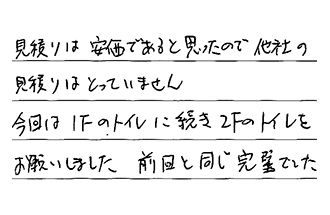 見積りは 安価であると思ったので 他社の
見積りはとっていません
今回は 1Fのトイレに続き 2Fのトイレを
お願いしました 前回と同じ完璧でした